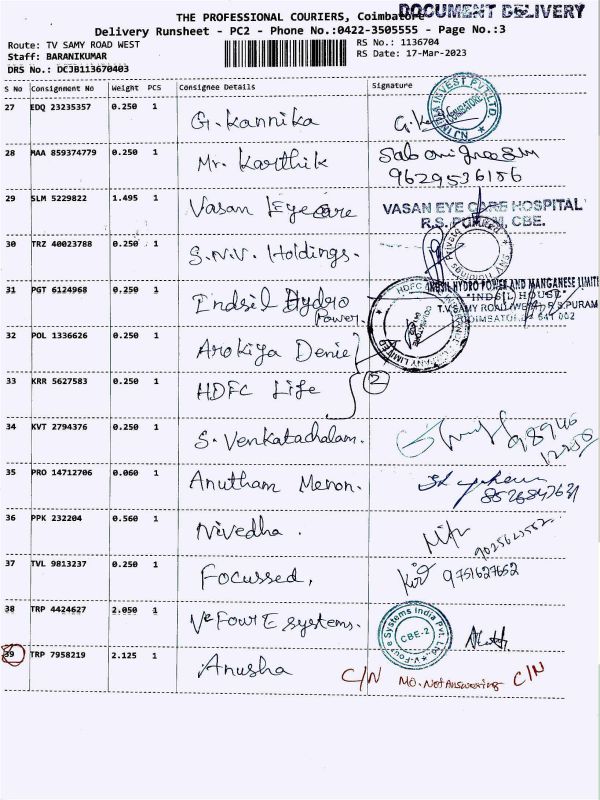 THE PROFESSIONAL COURIERS, Coimbatore
DOCUMENT DELIVERY
Delivery Runsheet - PC2 - Phone No.:0422-3505555 - Page No.:3
Route: TV SAMY ROAD WEST
RS No.: 1136704
Staff: BARANIKUMAR
RS Date: 17-Mar-2023
DRS No.: DCJB113670403
S No Consignment No Weight PCS Consignee Details Signature
27 EDQ 23235357 0.250 1 G. Kannika
INVEST PVT LTD
COIMBATORE
28 MAA 859374779 0.250 1 Mr. Karthik
9629536186
29 SLM 5229822 1.495 1 Vasan Eye care
VASAN EYE CARE HOSPITAL
R.S. PURAM, CBE.
30 TRZ 40023788 0.250 1 S.N.V. Holdings.
31 PGT 6124968 0.250 1 Endsil Hydro
Power
INDSIL HYDRO POWER AND MANGANESE LIMITE
"INDSIL HOUSE"
T.V SAMY ROAD (WEST), R.S.PURAM
COIMBATORE 641 002
32 POL 1336626 0.250 1 Arokiya Denie
33 KRR 5627583 0.250 1 HDFC Life
2
34 KVT 2794376 0.250 1 S. Venkatachalam.
98946
12258
35 PRO 14712706 0.060 1 Anutham Menon.
8526847631
36 PPK 232204 0.560 1 Nivedha .
9025623552
37 TVL 9813237 0.250 1 Focussed,
9751627652
38 TRP 4424627 2.050 1 Ve Four E systems.
V-Four e Systems India Pvt. Ltd.
CBE-2
39 TRP 7958219 2.125 1 Anusha
C/N Mo. Not Answering C/N